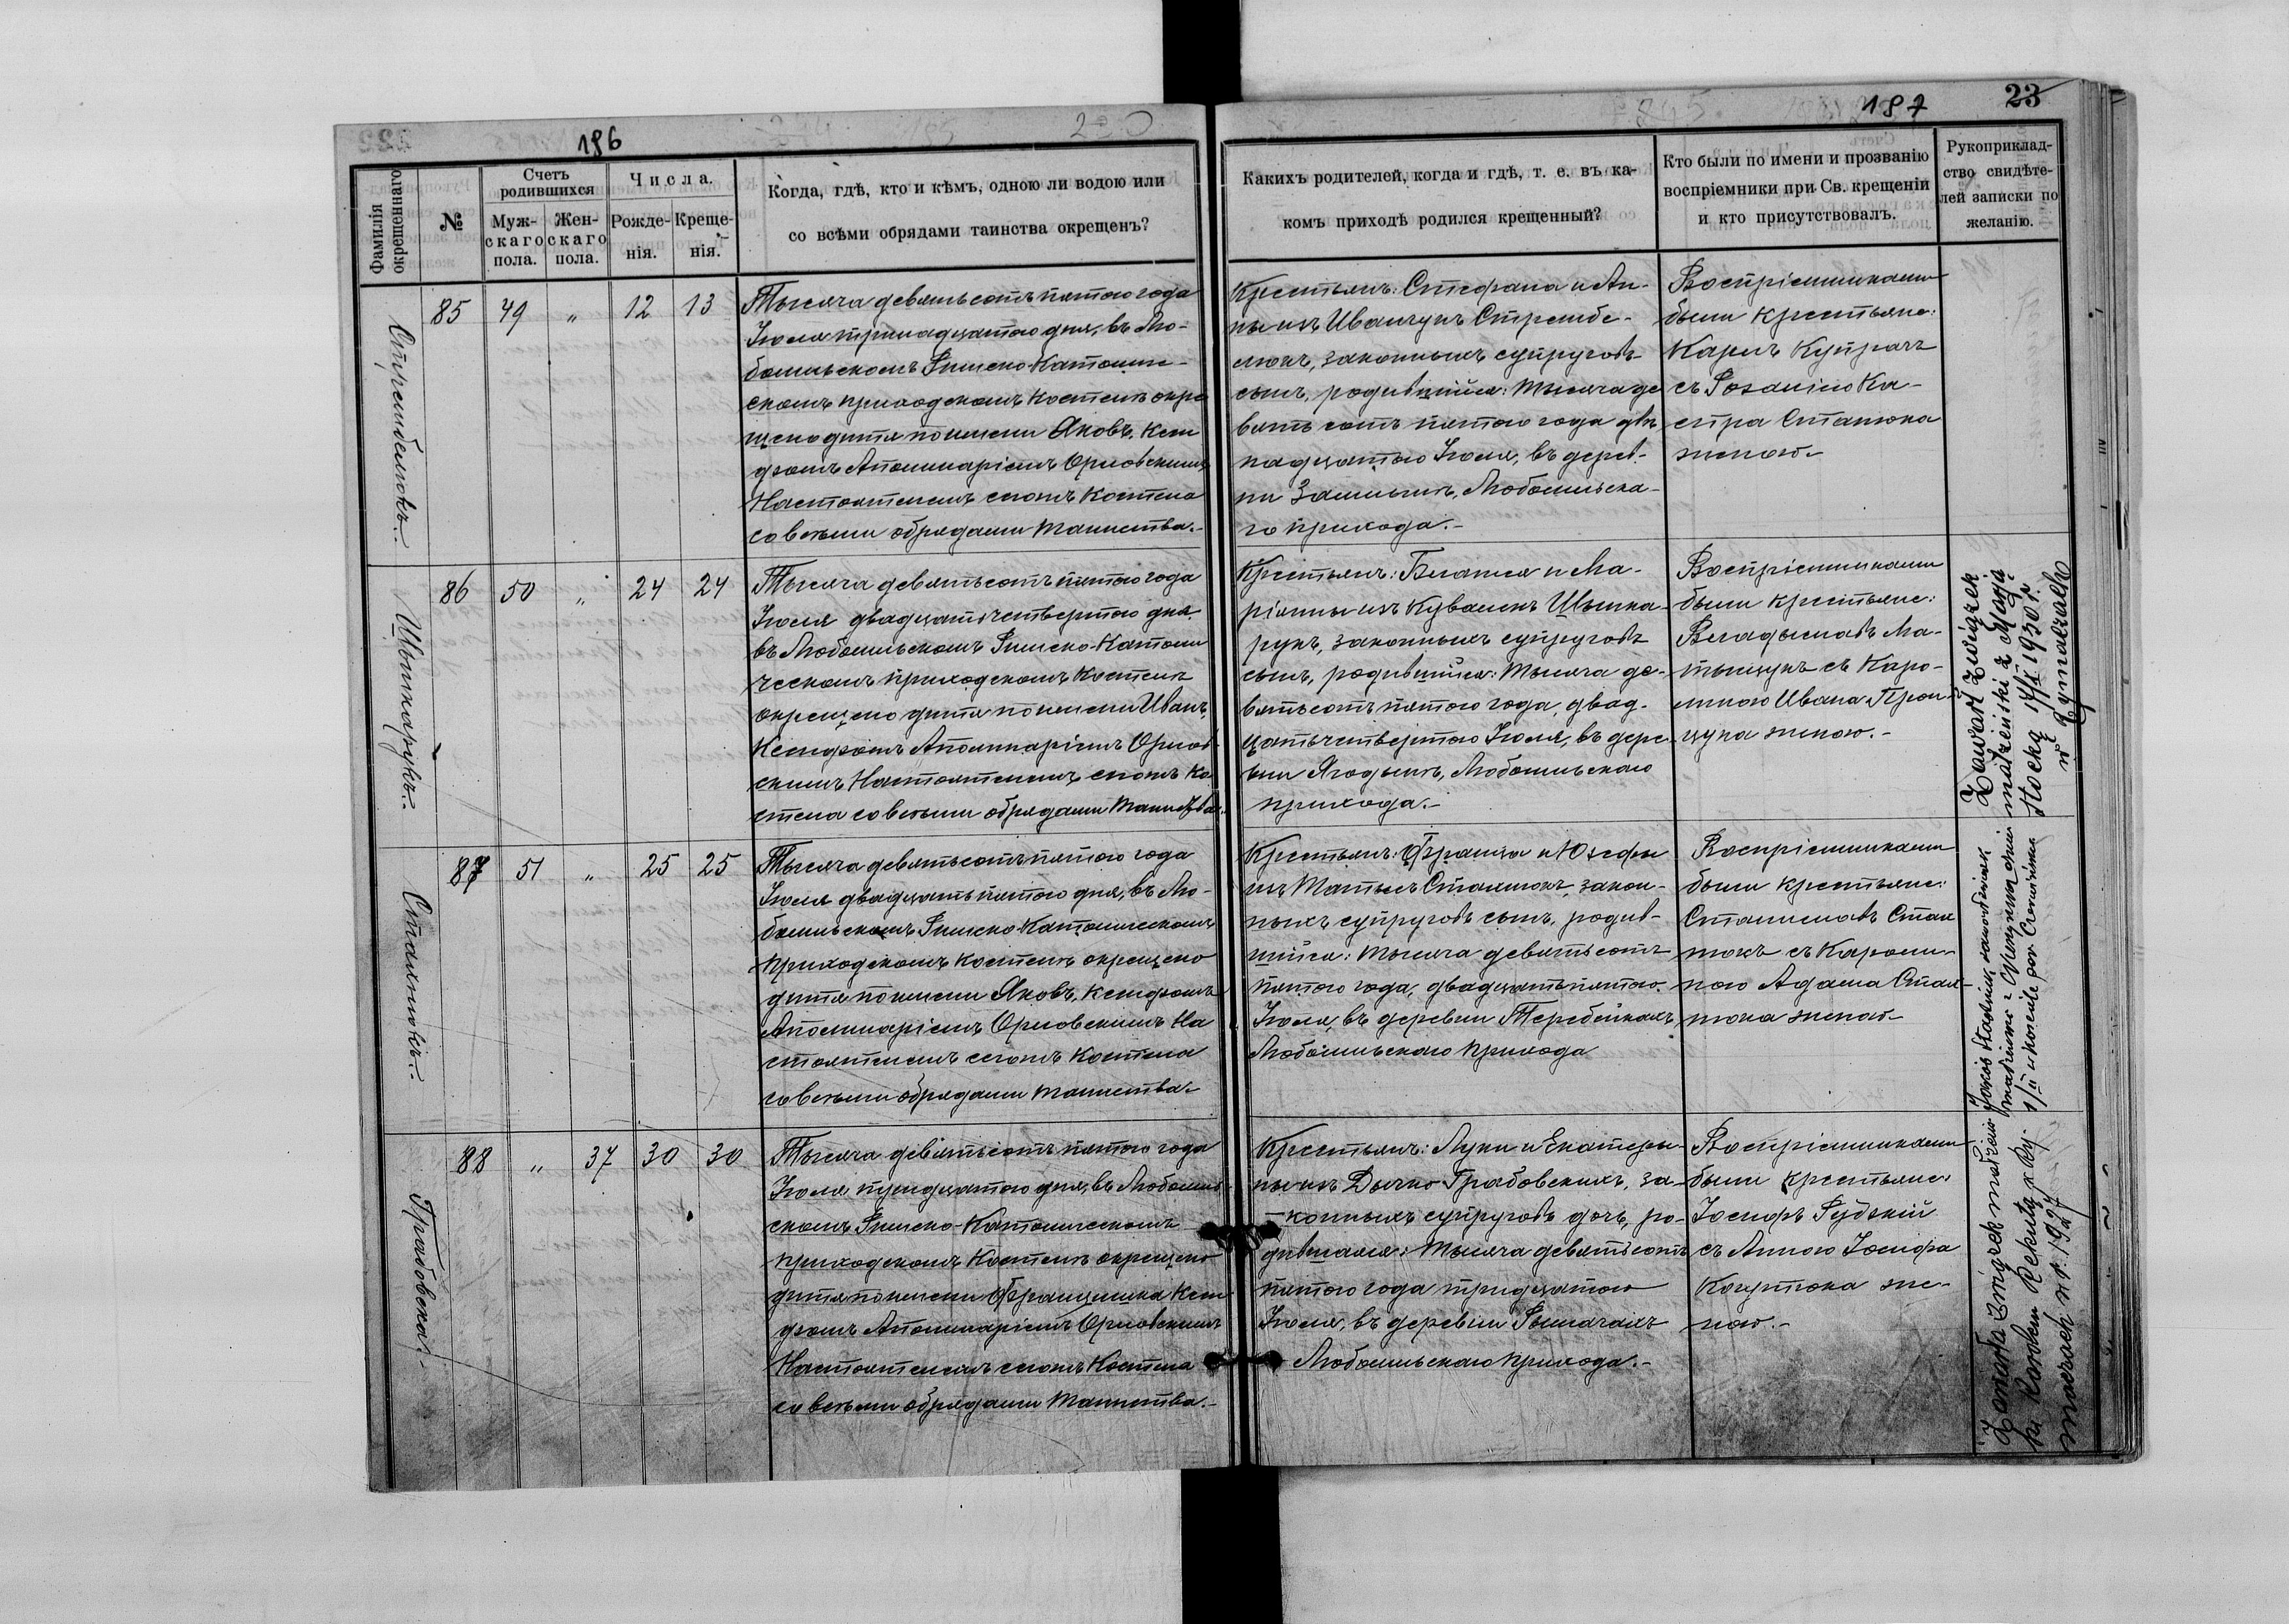 186
187
23
Фамилія окрещеннаго
№
Счетъ родившихся
Муж-
скаго
пола.
Жен-
скаго
пола.
Числа.
Рожде-
нія.
Креще-
нія.
Когда, гдѣ, кто и кѣмъ, одною ли водою или
со всѣми обрядами таинства окрещенъ?
Какихъ родителей, когда и гдѣ, т. е. въ ка-
комъ приходѣ родился крещенный?
Кто были по имени и прозванію
воспріемники при Св. крещеніи
и кто присутствовалъ.
Рукоприклад-
ство свидѣте-
лей записки по
желанію.
Стрембелюкъ.
85 49 „ 12 13
Тысяча девятьсотъ пятого года
Іюля тринадцатого дня, въ Лю-
бомльскомъ Римско-Католиче-
скомъ приходскомъ Костелѣ окре
щено дитя по имени Яковъ, Ксен
дзомъ Аполинаріемъ Орловскимъ
Настоятелемъ сего Костела
со всѣми обрядами таинства.-
Крестьянъ: Стефана и Ан-
ны изъ Иванчукъ Стрембе-
люкъ, законныхъ супруговъ
сынъ, родившійся: тысяча де
вять сотъ пятого года двѣ
надцатого Іюля, въ дерев-
ни Замлынѣ, Любомльска-
го прихода.-
Воспріемниками
были крестьяне:
Карлъ Купрачъ
съ Розаліею Ка-
спра Станюка
женою.-
Швикарукъ.
86 50 „ 24 24
Тысяча девятьсотъ пятого года
Іюля двадцать четвертого дня
въ Любомльскомъ Римско-Католи
ческомъ приходскомъ Костелѣ
окрещено дитя по имени Иванъ,
Ксендзомъ Аполинаріемъ Орлов-
скимъ Настоятелемъ сего Ко
стела со всѣми обрядами таинства.
рукъ, законныхъ супруговъ
сынъ, родившійся: тысяча де-
вятьсотъ пятого года, двад-
цать четвертого Іюля, въ дере-
вни Ягодынѣ, Любомльскаго
прихода.-
Воспріемниками
были крестьяне:
Владыславъ Ма-
тыщукъ съ Каро-
линою Ивана
женою.-
Zawarł związek
małżeński z Marją
1930 r.
w Rymaczach
Стахнюкъ.
87 51 „ 25 25
Тысяча девятьсотъ пятого года
Іюля двадцать пятого дня, въ Лю-
бомльскомъ Римско-Католическомъ
приходскомъ Костелѣ окрещено
дитя по имени Яковъ, Ксендзомъ
Аполинаріемъ Орловскимъ На
стоятелемъ сего Костела
со всѣми обрядами таинства.-
Крестьянъ: Франца и Юзефы
изъ Матысъ Стахнюкъ, закон-
ныхъ супруговъ сынъ, родив-
шійся: тысяча девятьсотъ
пятого года, двадцать пятого
Іюля, въ деревни Теребейкахъ
Любомльскаго прихода
Воспріемниками
были крестьяне:
Станиславъ Стах
нюкъ съ Кароли-
ною Адама Стах-
нюка женою-
Грабовска.
88 „ 37 30 30
Тысяча девятьсотъ пятого года
Іюля тридцатого дня, въ Любомль-
скомъ Римско-Католическомъ
приходскомъ Костелѣ окрещено
дитя по имени Францишка Ксен
дзомъ Аполинаріемъ Орловскимъ
Настоятелемъ сего Костела
со всѣми обрядами таинства.-
Крестьянъ: Луки и Екатеры-
ны изъ Дычко Грабовскихъ, за-
конныхъ супруговъ дочь, ро-
дившаяся: тысяча девятьсотъ
пятого года тридцатого
Іюля, въ деревни Рымачахъ
Любомльскаго прихода.-
Воспріемниками
были крестьяне:
Іосифъ Рудзкій
съ Анною Іосифа
же-
ною.-
Zawarła związek małżeńs-
ki z Karolem w Ry-
maczach w r. 1927